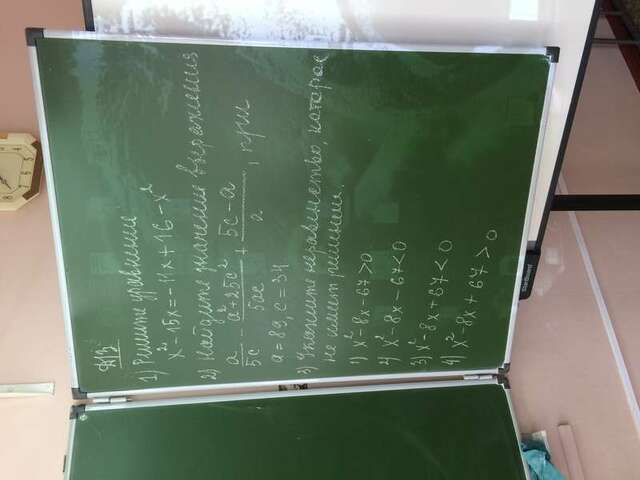 Д/З
1) Решите уравнение
x² - 15x = -11x + 16 - x²
2) Найдите значение выражения
a/5c - a²+25c²/5ac + 5c-a/a, при
a = 89, c = 34
3) Укажите неравенство, которое
не имеет решений.
1) x² - 8x - 67 > 0
2) x² - 8x - 67 < 0
3) x² - 8x + 67 < 0
4) x² - 8x + 67 > 0
StarBoard